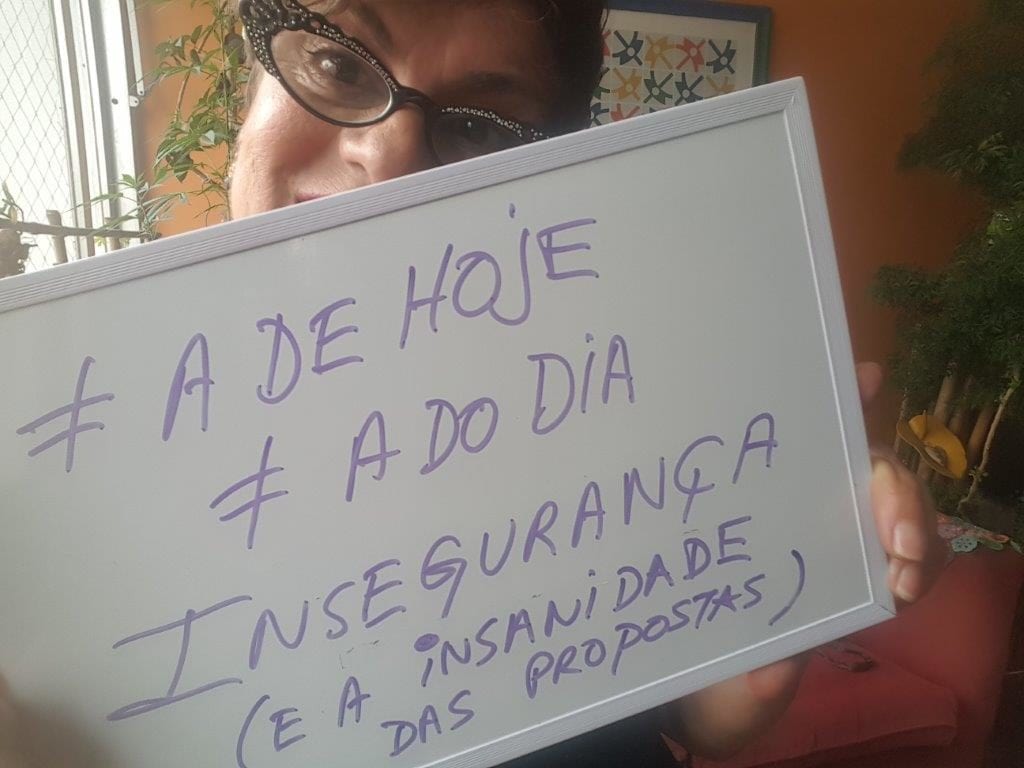 ≠ A DE HOJE
≠ A DO DIA
INSEGURANÇA
(E A INSANIDADE
DAS PROPOSTAS)